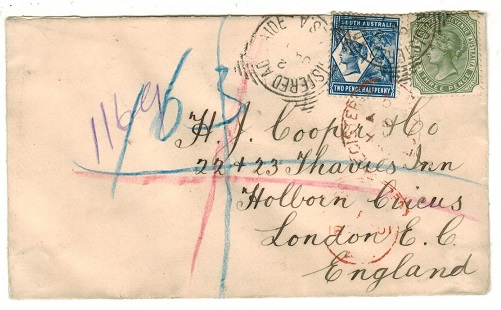 SOUTH AUSTRALIA
TWO PENCE HALFPENNY
THREE PENCE
REGISTERED ADELAIDE S.A
1169
63
H. J. Cooper & Co
22 + 23 Thavies Inn
Holborn Circus
London E. C.
England